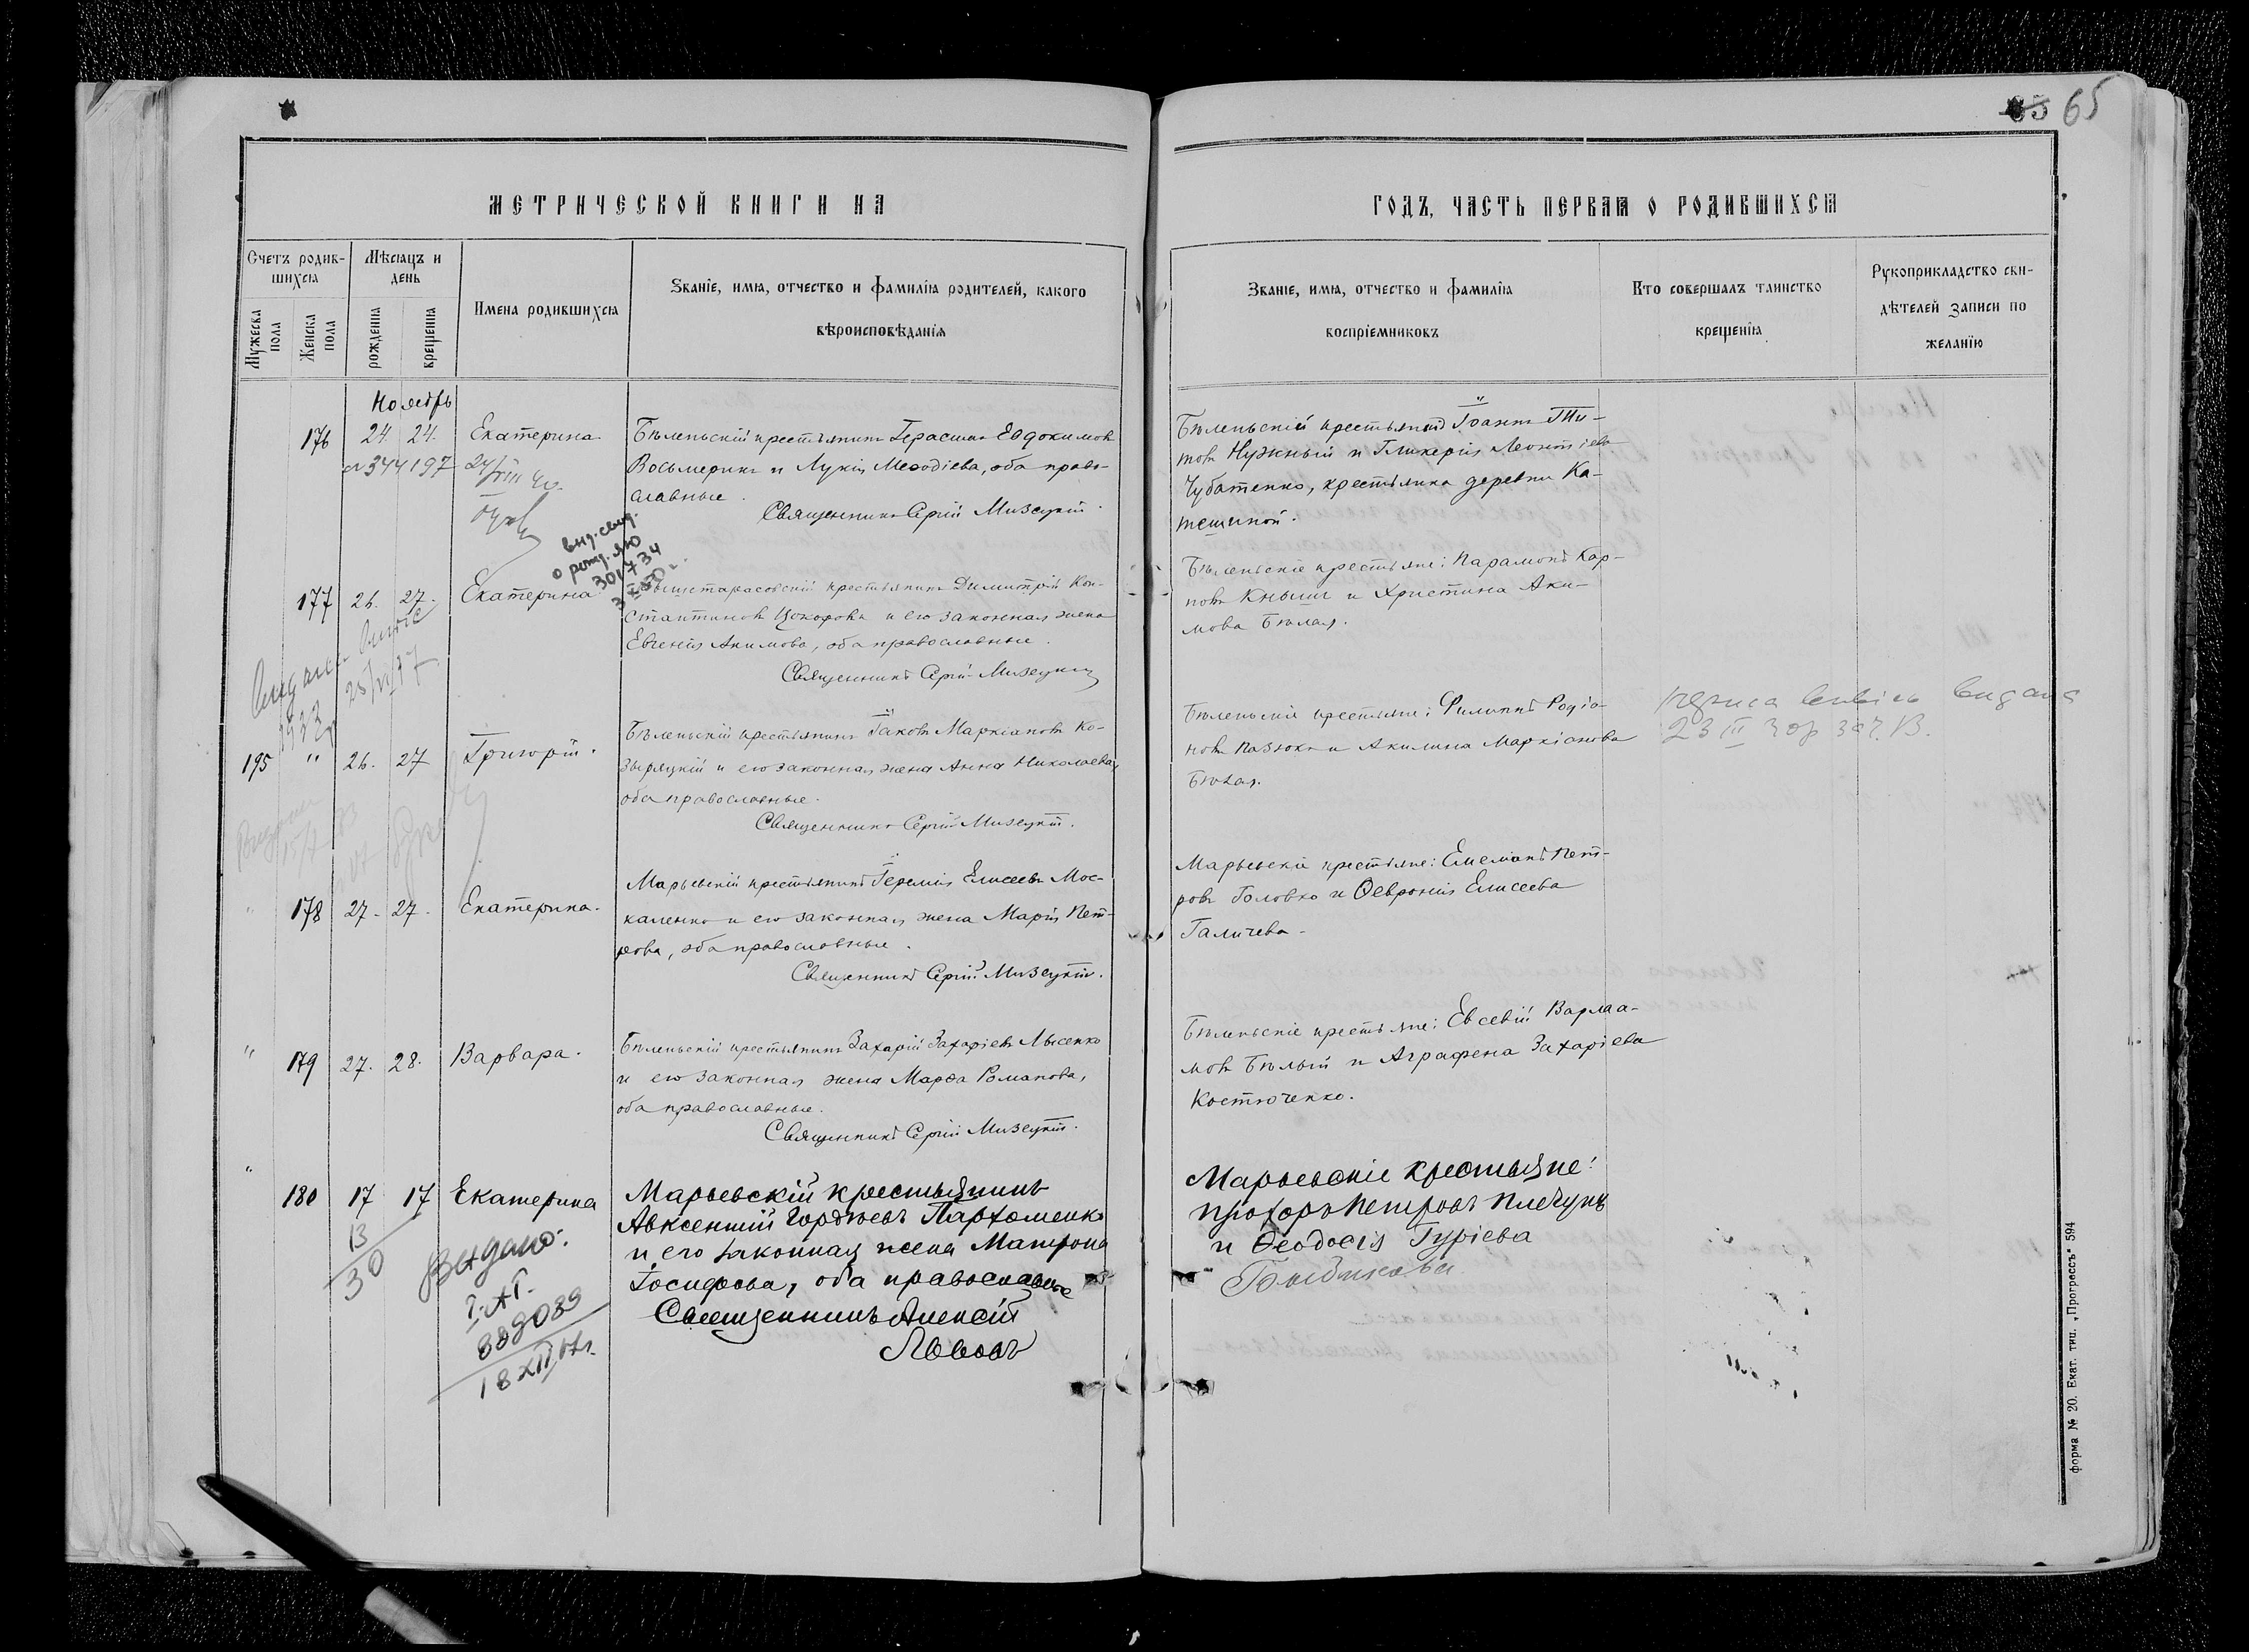 65 65
МЕТРИЧЕСКОЙ КНИГИ НА
ГОДЪ, ЧАСТЬ ПЕРВАЯ О РОДИВШИХСЯ
Счетъ родив-
шихся
Мужеска пола
Женска пола
Мѣсяцъ и
день
рожденія
крещенія
Имена родившихся
Званіе, имя, отчество и фамилія родителей, какого
вѣроисповѣданія
Званіе, имя, отчество и фамилія
воспріемниковъ
Кто совершалъ таинство
крещенія
Рукоприкладство сви-
дѣтелей записи по
желанію
Ноябрь
176 24 24. Екатерина
344197 24/VIII
Бѣленьскій крестьянинъ Герасимъ Евдокимовъ
Восьмерикъ и Лукія Меѳодіева, оба право-
славные.
Священникъ Сергій Мизецкій.
Бѣленьскій крестьянинъ Іоаннъ Ти-
товъ Нужный и Гликерія Леонтіева
Чубатенко, крестьянка деревни Ка-
тещиной.
вид. свид.
о рожд. ЯЮ
301734
177 26. 27. Екатерина
Вышетарасовскій крестьянинъ Димитрій Кон-
стантиновъ Цокоровъ и его законная жена
Евгенія Акимова, оба православные.
Священникъ Сергій Мизецкій
Бѣленьскіе крестьяне: Парамонъ Кар-
повъ Кнышъ и Христина Аки-
мова Бѣлая.
25/VI 37
195 " 26. 27 Григорій.
Бѣленьскій крестьянинъ Іаковъ Маркіановъ Ко-
зыряцкій и его законная жена Анна Николаева,
оба православные.
Священникъ Сергій Мизецкій.
Бѣленьскіе крестьяне: Филиппъ Родіо-
новъ Пазюкъ и Акилина Маркіанова
Бѣлая.
видана
23 III
" 178 27. 27. Екатерина.
Марьевскій крестьянинъ Іеремія Елисеевъ Мос-
каленко и его законная жена Марія Пет-
рова, оба православные.
Священникъ Сергій Мизецкій.
Марьевскіе крестьяне: Емеліанъ Пет-
ровъ Головко и Ѳевронія Елисеева
Галичева.
" 179 27. 28. Варвара.
Бѣленьскій крестьянинъ Захарій Захаріевъ Лысенко
и его законная жена Марѳа Романова,
оба православные.
Священникъ Сергій Мизецкій.
Бѣленьскіе крестьяне: Евсевій Варлаа-
мовъ Бѣлый и Аграфена Захаріева
Костюченко.
" 180 17 17 Екатерина
Марьевскій крестьянинъ
Авксентій Гордѣевъ Пархоменко
и его законная жена Матрона
Іосифова, оба православные
Священникъ Алексій
Львовъ
Марьевскіе крестьяне:
Прохоръ Петровъ Плечунъ
и Ѳеодосія Гуріева
13
30
Видано:
888089
18 XII 47г.
форма № 20. Екат. тип. „Прогрессъ" 594